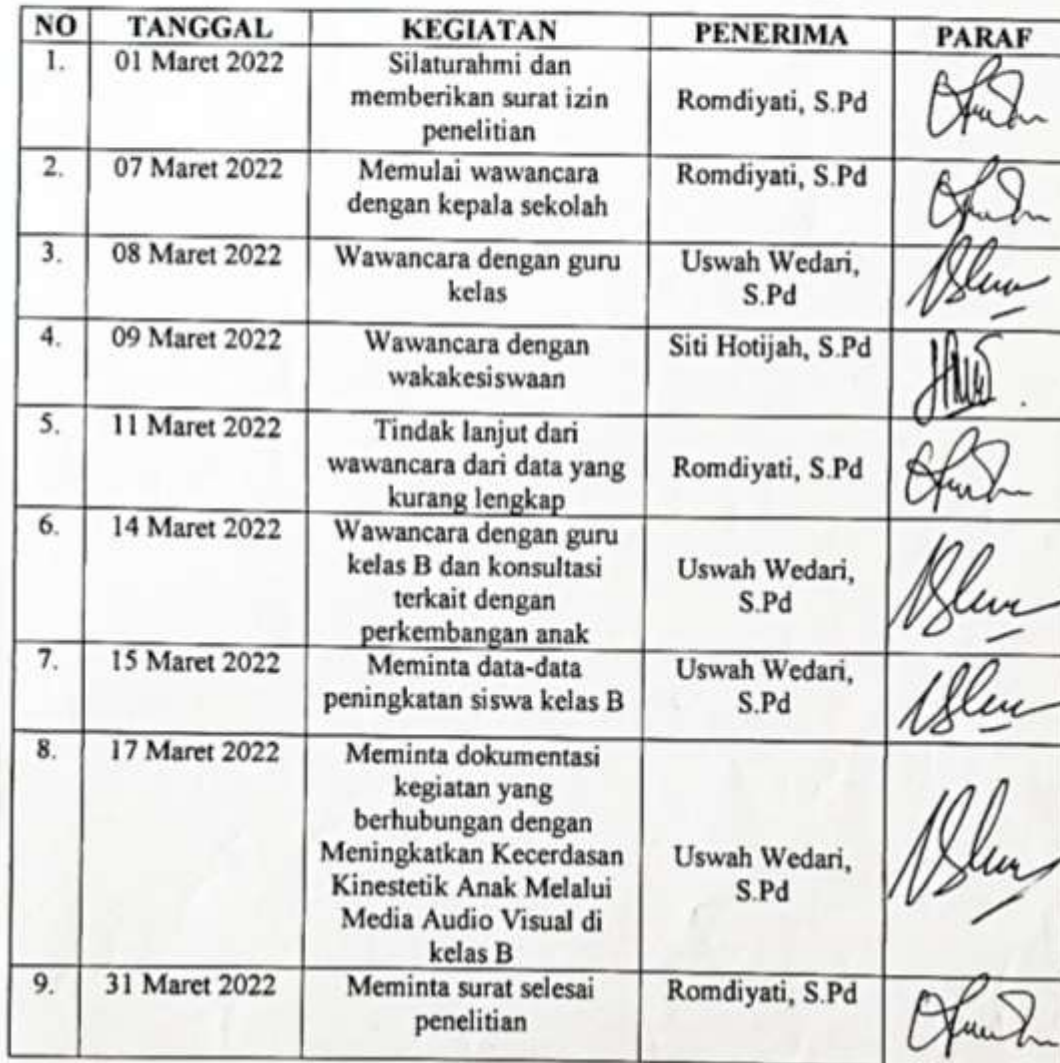 NO TANGGAL KEGIATAN PENERIMA PARAF
1. 01 Maret 2022 Silaturahmi dan
memberikan surat izin
penelitian
Romdiyati, S.Pd
2. 07 Maret 2022 Memulai wawancara
dengan kepala sekolah
Romdiyati, S.Pd
3. 08 Maret 2022 Wawancara dengan guru
kelas
Uswah Wedari,
S.Pd
4. 09 Maret 2022 Wawancara dengan
wakakesiswaan
Siti Hotijah, S.Pd
5. 11 Maret 2022 Tindak lanjut dari
wawancara dari data yang
kurang lengkap
Romdiyati, S.Pd
6. 14 Maret 2022 Wawancara dengan guru
kelas B dan konsultasi
terkait dengan
perkembangan anak
Uswah Wedari,
S.Pd
7. 15 Maret 2022 Meminta data-data
peningkatan siswa kelas B
Uswah Wedari,
S.Pd
8. 17 Maret 2022 Meminta dokumentasi
kegiatan yang
berhubungan dengan
Meningkatkan Kecerdasan
Kinestetik Anak Melalui
Media Audio Visual di
kelas B
Uswah Wedari,
S.Pd
9. 31 Maret 2022 Meminta surat selesai
penelitian
Romdiyati, S.Pd